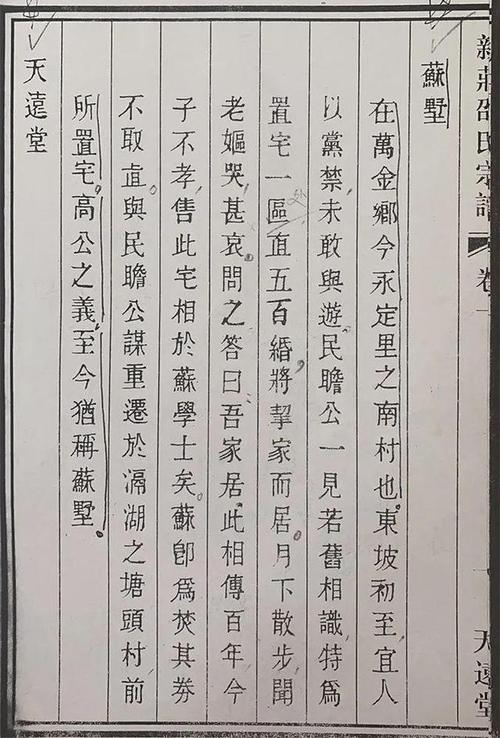 新莊邵氏宗譜 卷一 天遠堂
蘇墅
在萬金鄉今永定里之南村也東坡初至宜人
以黨禁未敢與遊民瞻公一見若舊相識特爲
置宅一區直五百緡將挈家而居月下散步聞
老嫗哭甚哀問之答曰吾家居此相傳百年今
子不孝售此宅相於蘇學士矣蘇卽爲焚其券
不取直與民瞻公謀重遷於滆湖之塘頭村前
所置宅高公之義至今猶稱蘇墅
天遠堂